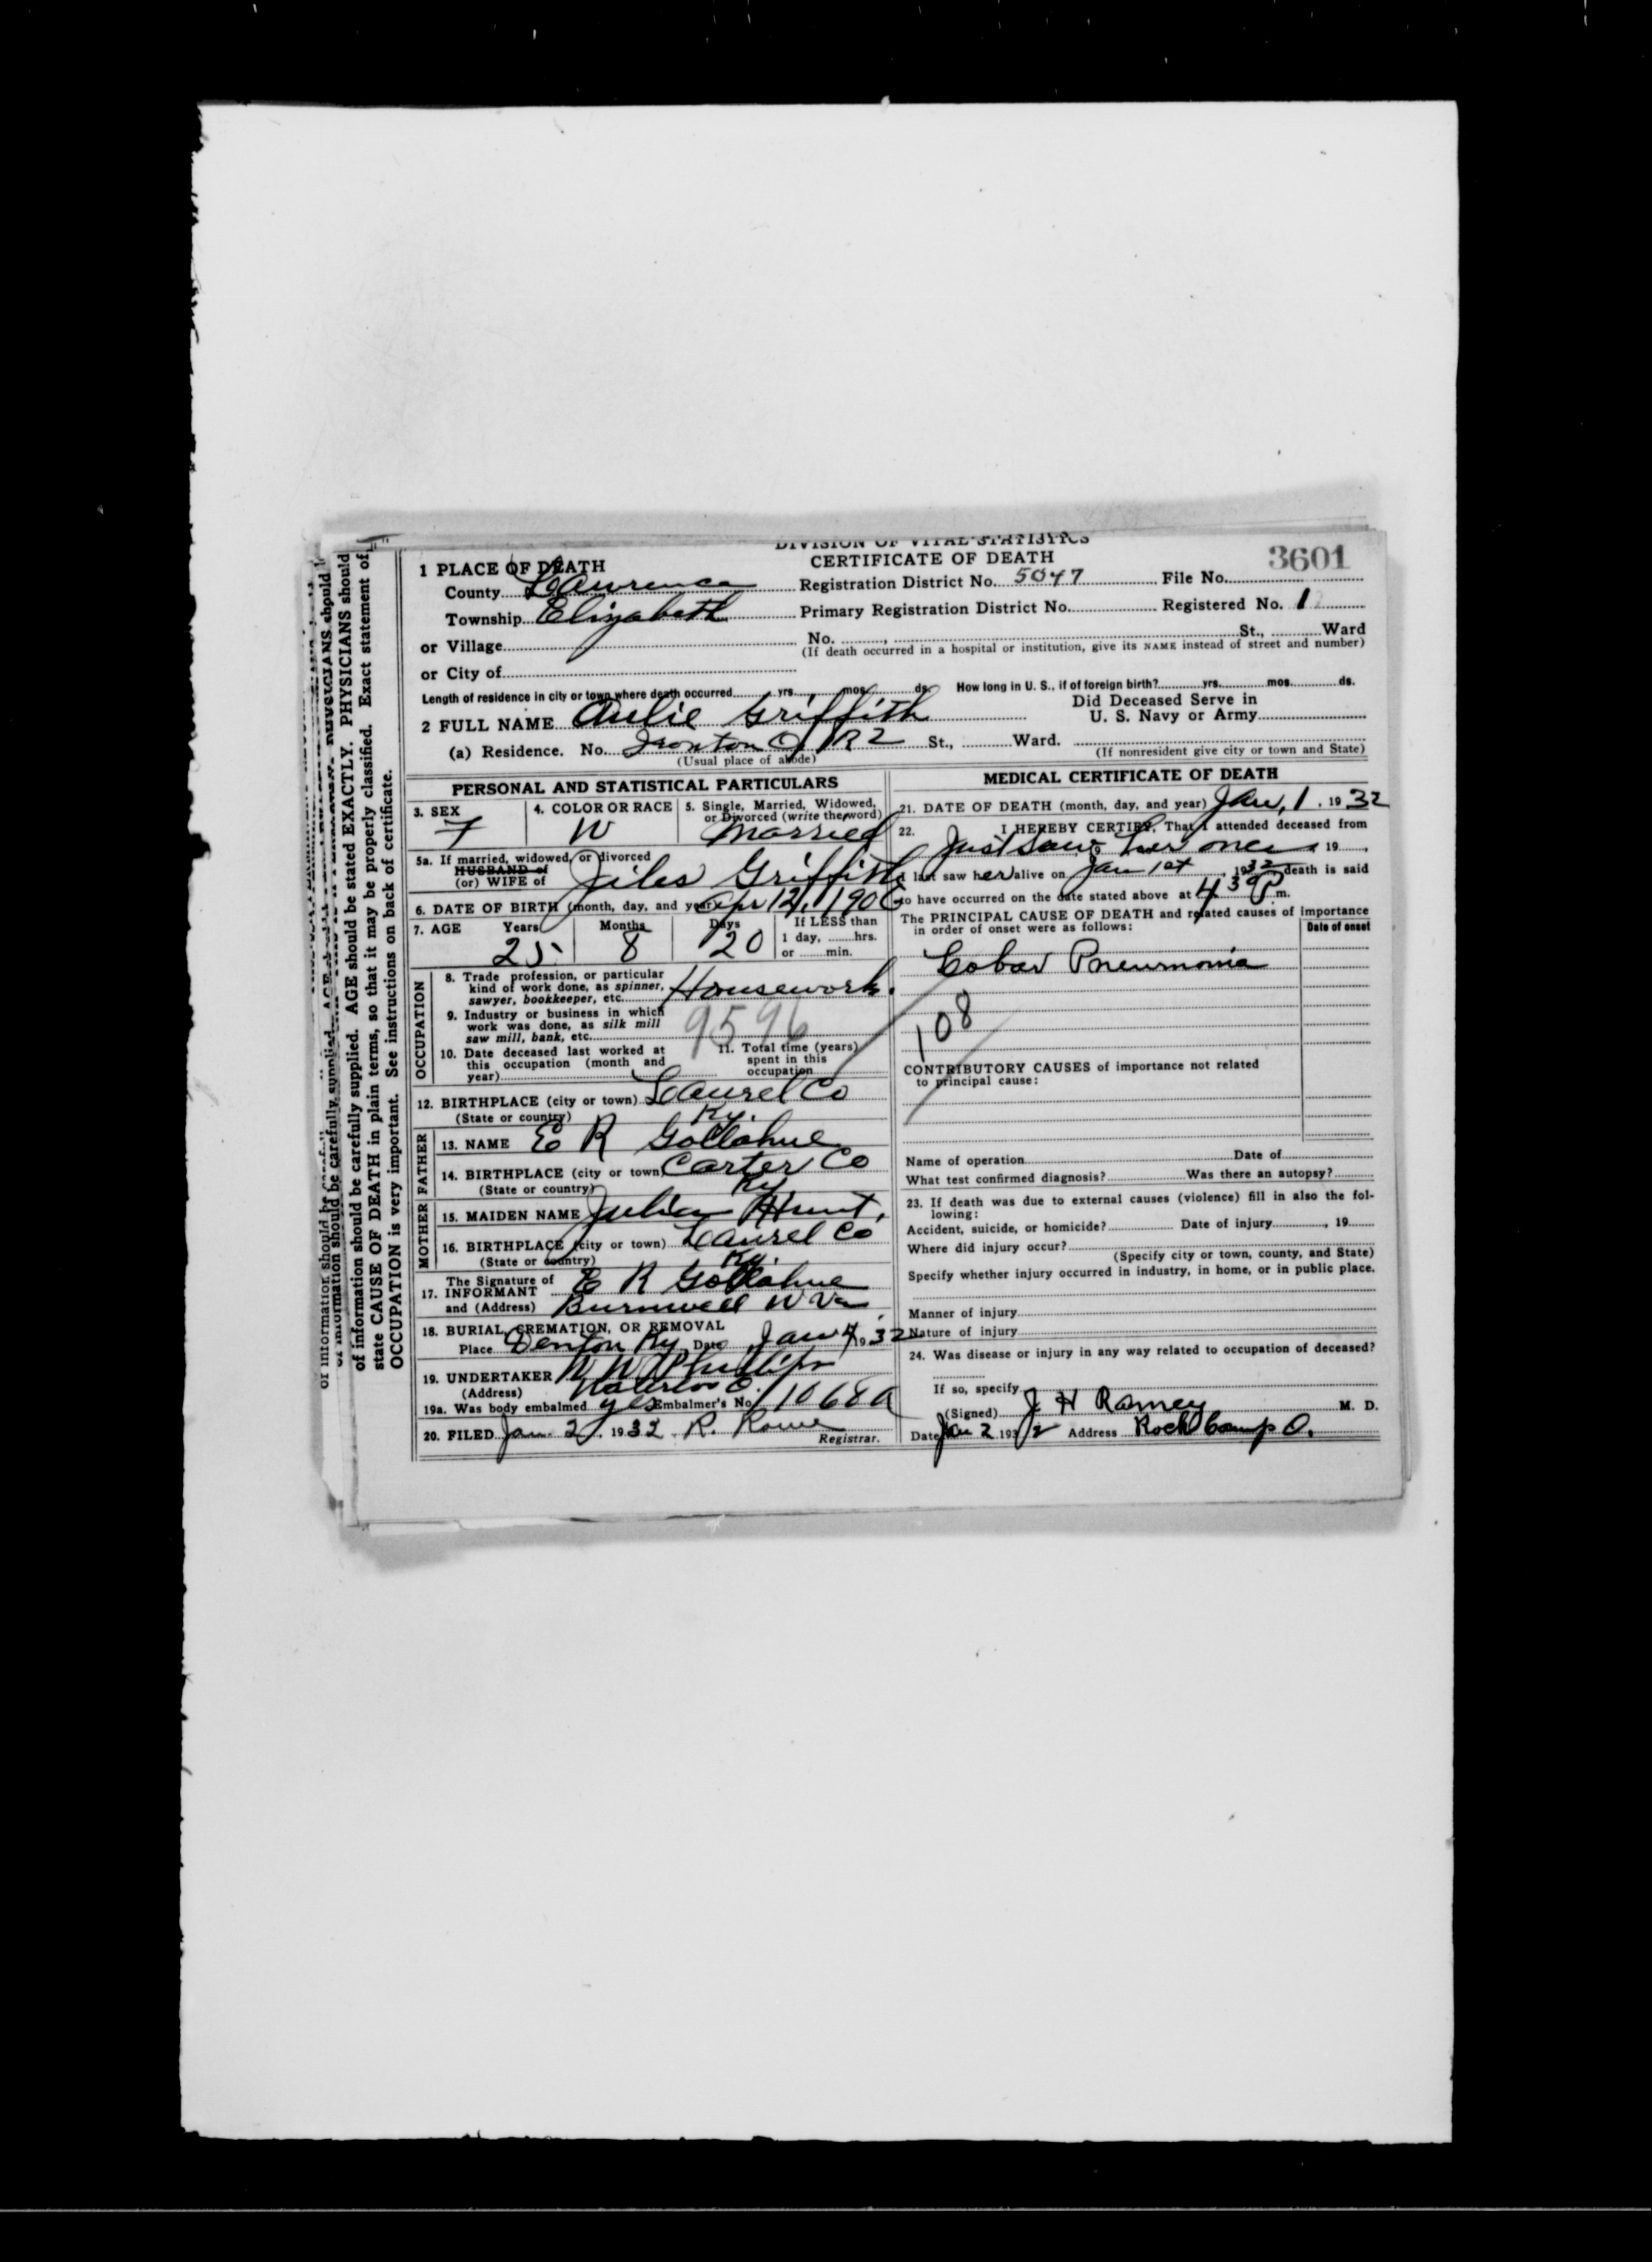 DIVISION OF VITAL STATISTICS
CERTIFICATE OF DEATH
3601
1 PLACE OF DEATH
County Lawrence Registration District No. 5047 File No.
Township Elizabeth Primary Registration District No. Registered No. 1
or Village No. , St., Ward
(If death occurred in a hospital or institution, give its NAME instead of street and number)
or City of
Length of residence in city or town where death occurred yrs. mos. ds. How long in U. S., if of foreign birth? yrs. mos. ds.
2 FULL NAME Aulie Griffith Did Deceased Serve in U. S. Navy or Army
(a) Residence. No. Ironton O R2 St., Ward.
(Usual place of abode) (If nonresident give city or town and State)
PERSONAL AND STATISTICAL PARTICULARS
3. SEX F
4. COLOR OR RACE W
5. Single, Married, Widowed, or Divorced (write the word) Married
5a. If married, widowed, or divorced
HUSBAND of
(or) WIFE of Jiles Griffith
6. DATE OF BIRTH (month, day, and year) Apr 12, 1906
7. AGE Years 25 Months 8 Days 20 If LESS than 1 day, hrs. or min.
OCCUPATION
8. Trade profession, or particular kind of work done, as spinner, sawyer, bookkeeper, etc. Housework.
9. Industry or business in which work was done, as silk mill saw mill, bank, etc.
9596
10. Date deceased last worked at this occupation (month and year)
11. Total time (years) spent in this occupation
12. BIRTHPLACE (city or town) Laurel Co
(State or country) Ky.
FATHER
13. NAME E R Gollahue
14. BIRTHPLACE (city or town) Carter Co
(State or country) Ky
MOTHER
15. MAIDEN NAME Julia Hunt,
16. BIRTHPLACE (city or town) Laurel Co
(State or country) Ky.
17. The Signature of INFORMANT E R Gollahue
and (Address) Burnwell W Va
18. BURIAL, CREMATION, OR REMOVAL
Place Denton Ky Date Jan 4 1932
19. UNDERTAKER Phillips
(Address) Waterloo O.
19a. Was body embalmed yes Embalmer's No. 1068A
20. FILED Jan. 2, 1932 R. Rowe
Registrar.
MEDICAL CERTIFICATE OF DEATH
21. DATE OF DEATH (month, day, and year) Jan, 1, 1932
22. I HEREBY CERTIFY, That I attended deceased from
Just saw to her once, 19 ,
I last saw her alive on Jan 1st, 1932 death is said
to have occurred on the date stated above at 4 30 P m.
The PRINCIPAL CAUSE OF DEATH and related causes of importance in order of onset were as follows:
Date of onset
Lobar Pneumonia
108
CONTRIBUTORY CAUSES of importance not related to principal cause:
Name of operation Date of
What test confirmed diagnosis? Was there an autopsy?
23. If death was due to external causes (violence) fill in also the following:
Accident, suicide, or homicide? Date of injury , 19
Where did injury occur?
(Specify city or town, county, and State)
Specify whether injury occurred in industry, in home, or in public place.
Manner of injury
Nature of injury
24. Was disease or injury in any way related to occupation of deceased?
If so, specify
(Signed) J H Ramey M. D.
Date Jan 2 1932 Address Rock Camp O.
of information should be carefully supplied. AGE should be stated EXACTLY. PHYSICIANS should
state CAUSE OF DEATH in plain terms, so that it may be properly classified. Exact statement of
OCCUPATION is very important. See instructions on back of certificate.